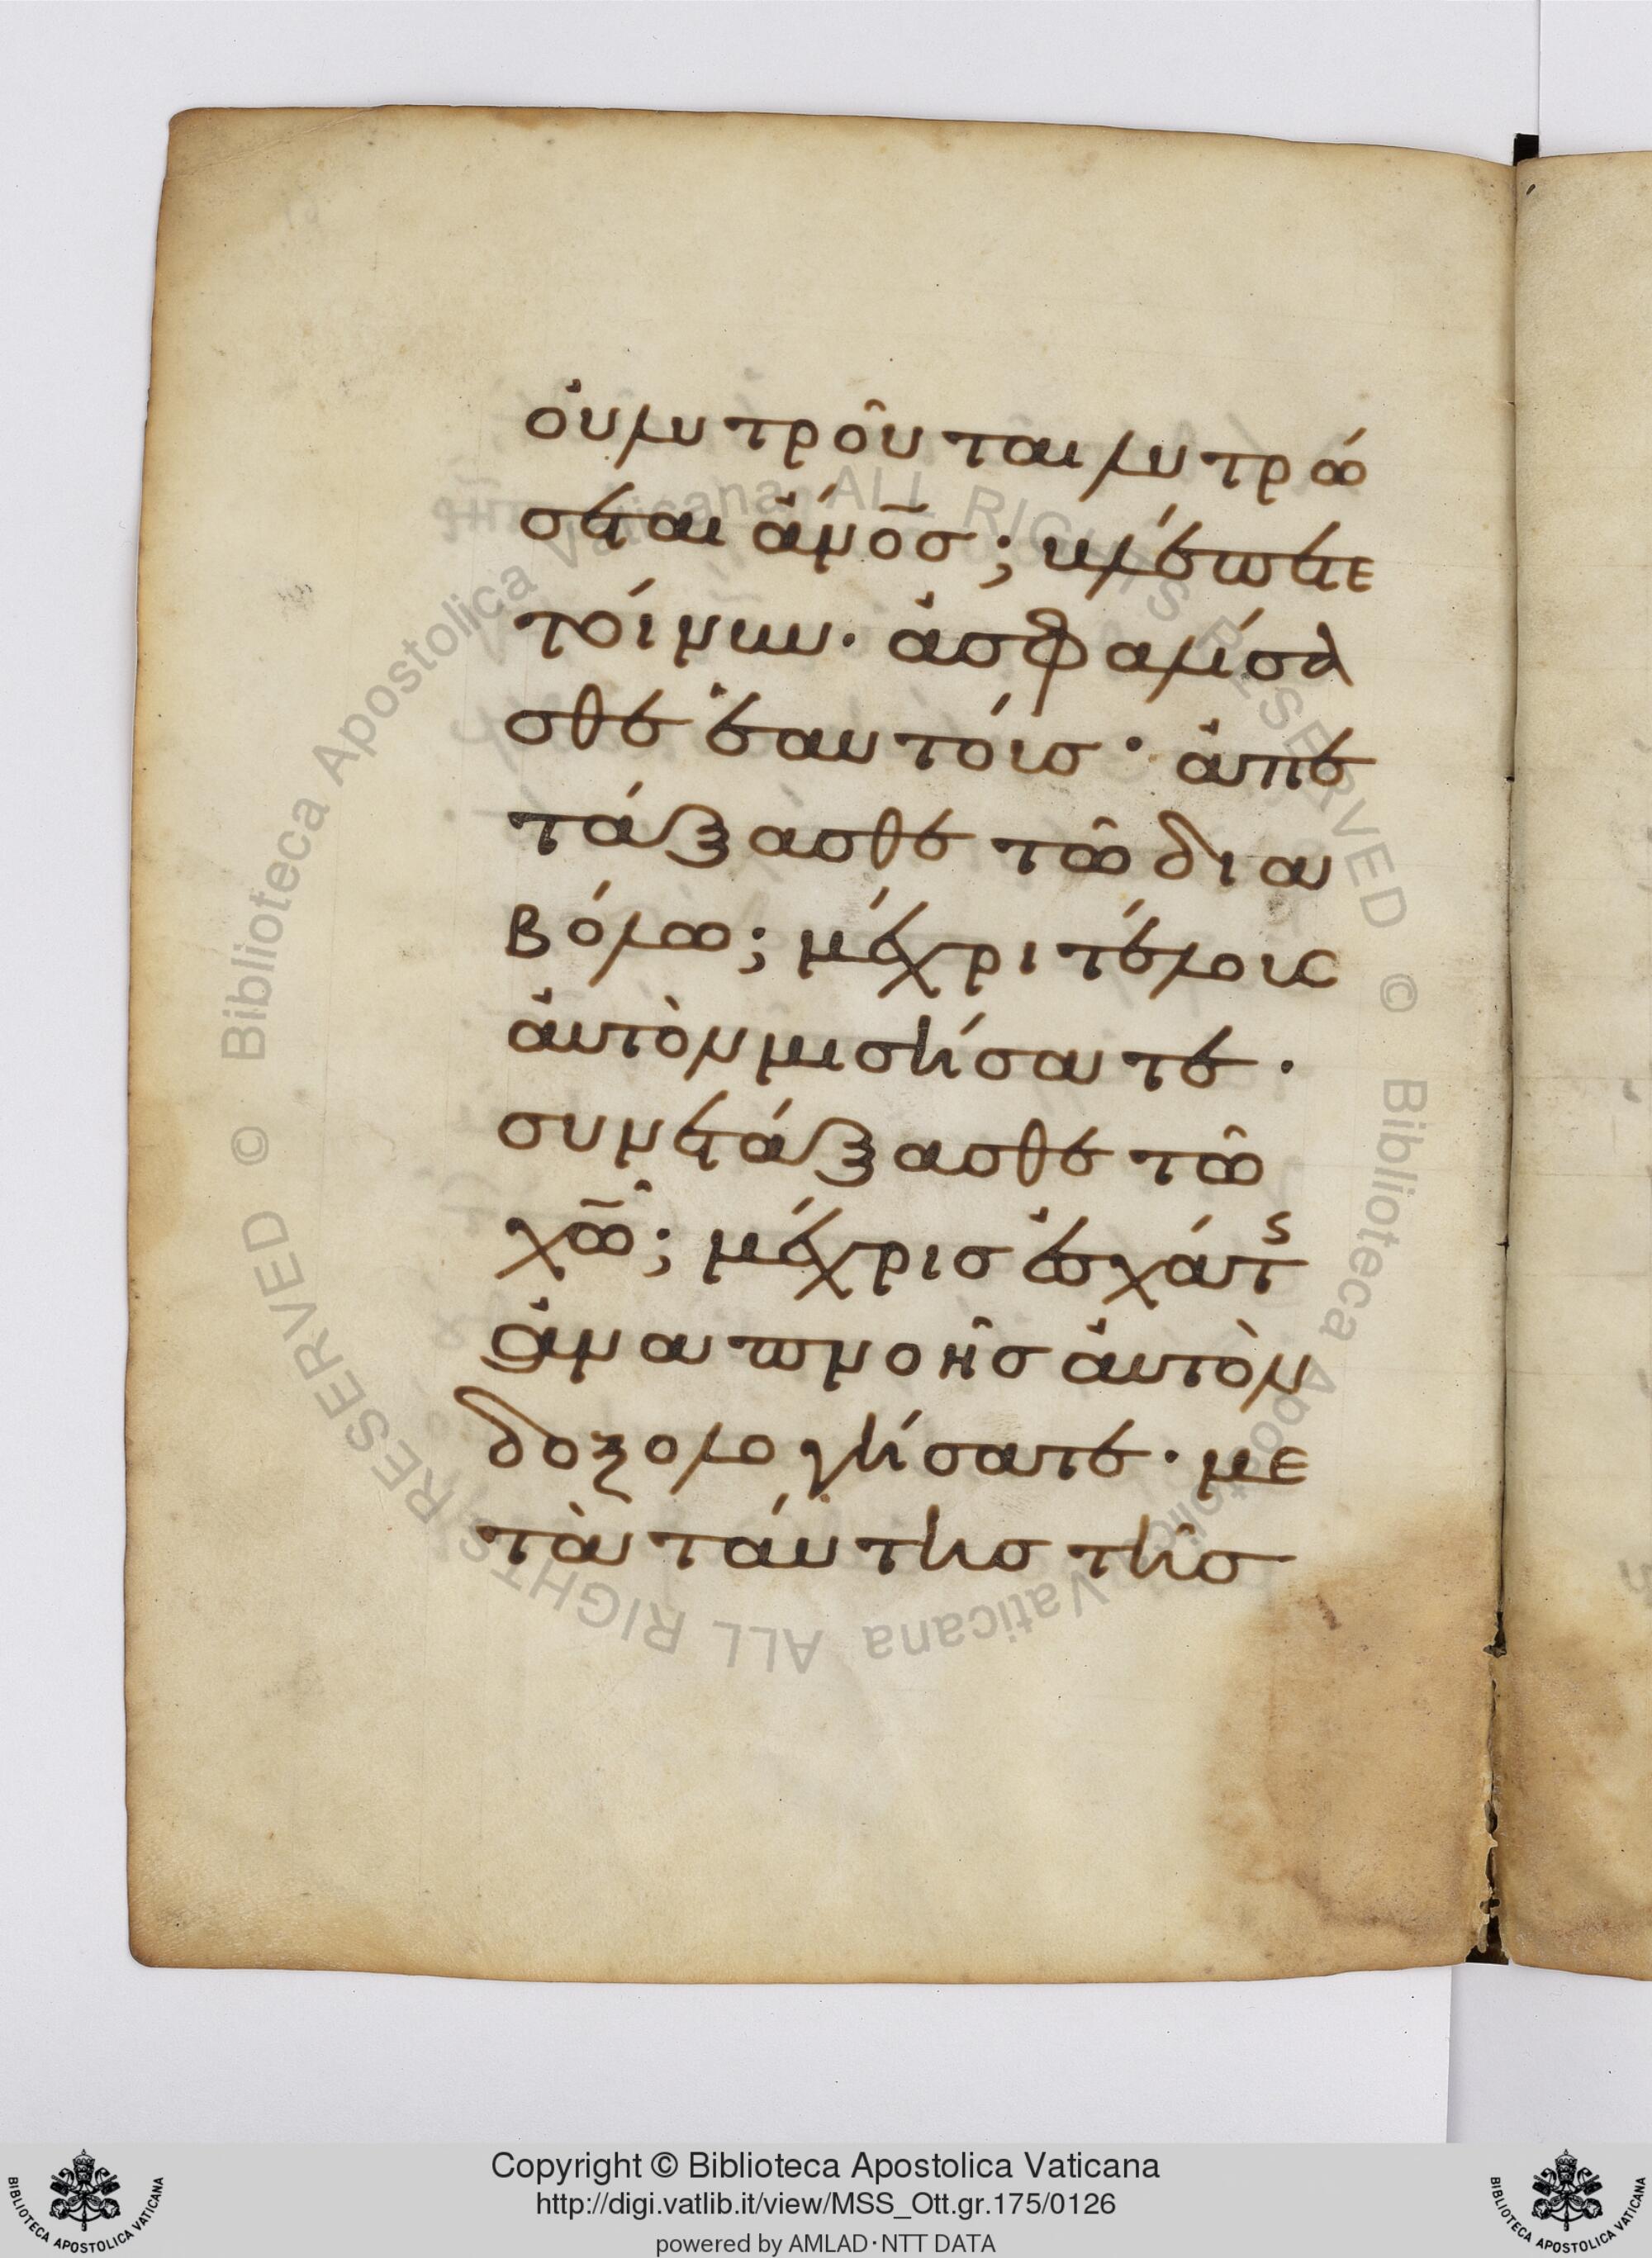 οὐ λυτροῦται λυτρώ
σεται ἀν̅ο̅ς; βλέπετε
τοίνυν· ἀσφαλίσα
σθε ἑαυτοίς· ἀπε
τάξασθε τῶ δια
βόλω; μέχρι τέλους
ἀυτὸν μισήσατε·
συνετάξασθε τῶ
χ̅ω̅; μέχρις ἐσχάτ(ης)
ἀναπνοῆς ἀυτὸν
δοξολογήσατε· με
τὰ ταύτης τῆς
© Biblioteca Apostolica Vaticana ALL RIGHTS RESERVED © Biblioteca Apostolica Vaticana ALL RIGHTS RESERVED
Copyright © Biblioteca Apostolica Vaticana
http://digi.vatlib.it/view/MSS_Ott.gr.175/0126
powered by AMLAD·NTT DATA
BIBLIOTECA APOSTOLICA VATICANA
BIBLIOTECA APOSTOLICA VATICANA